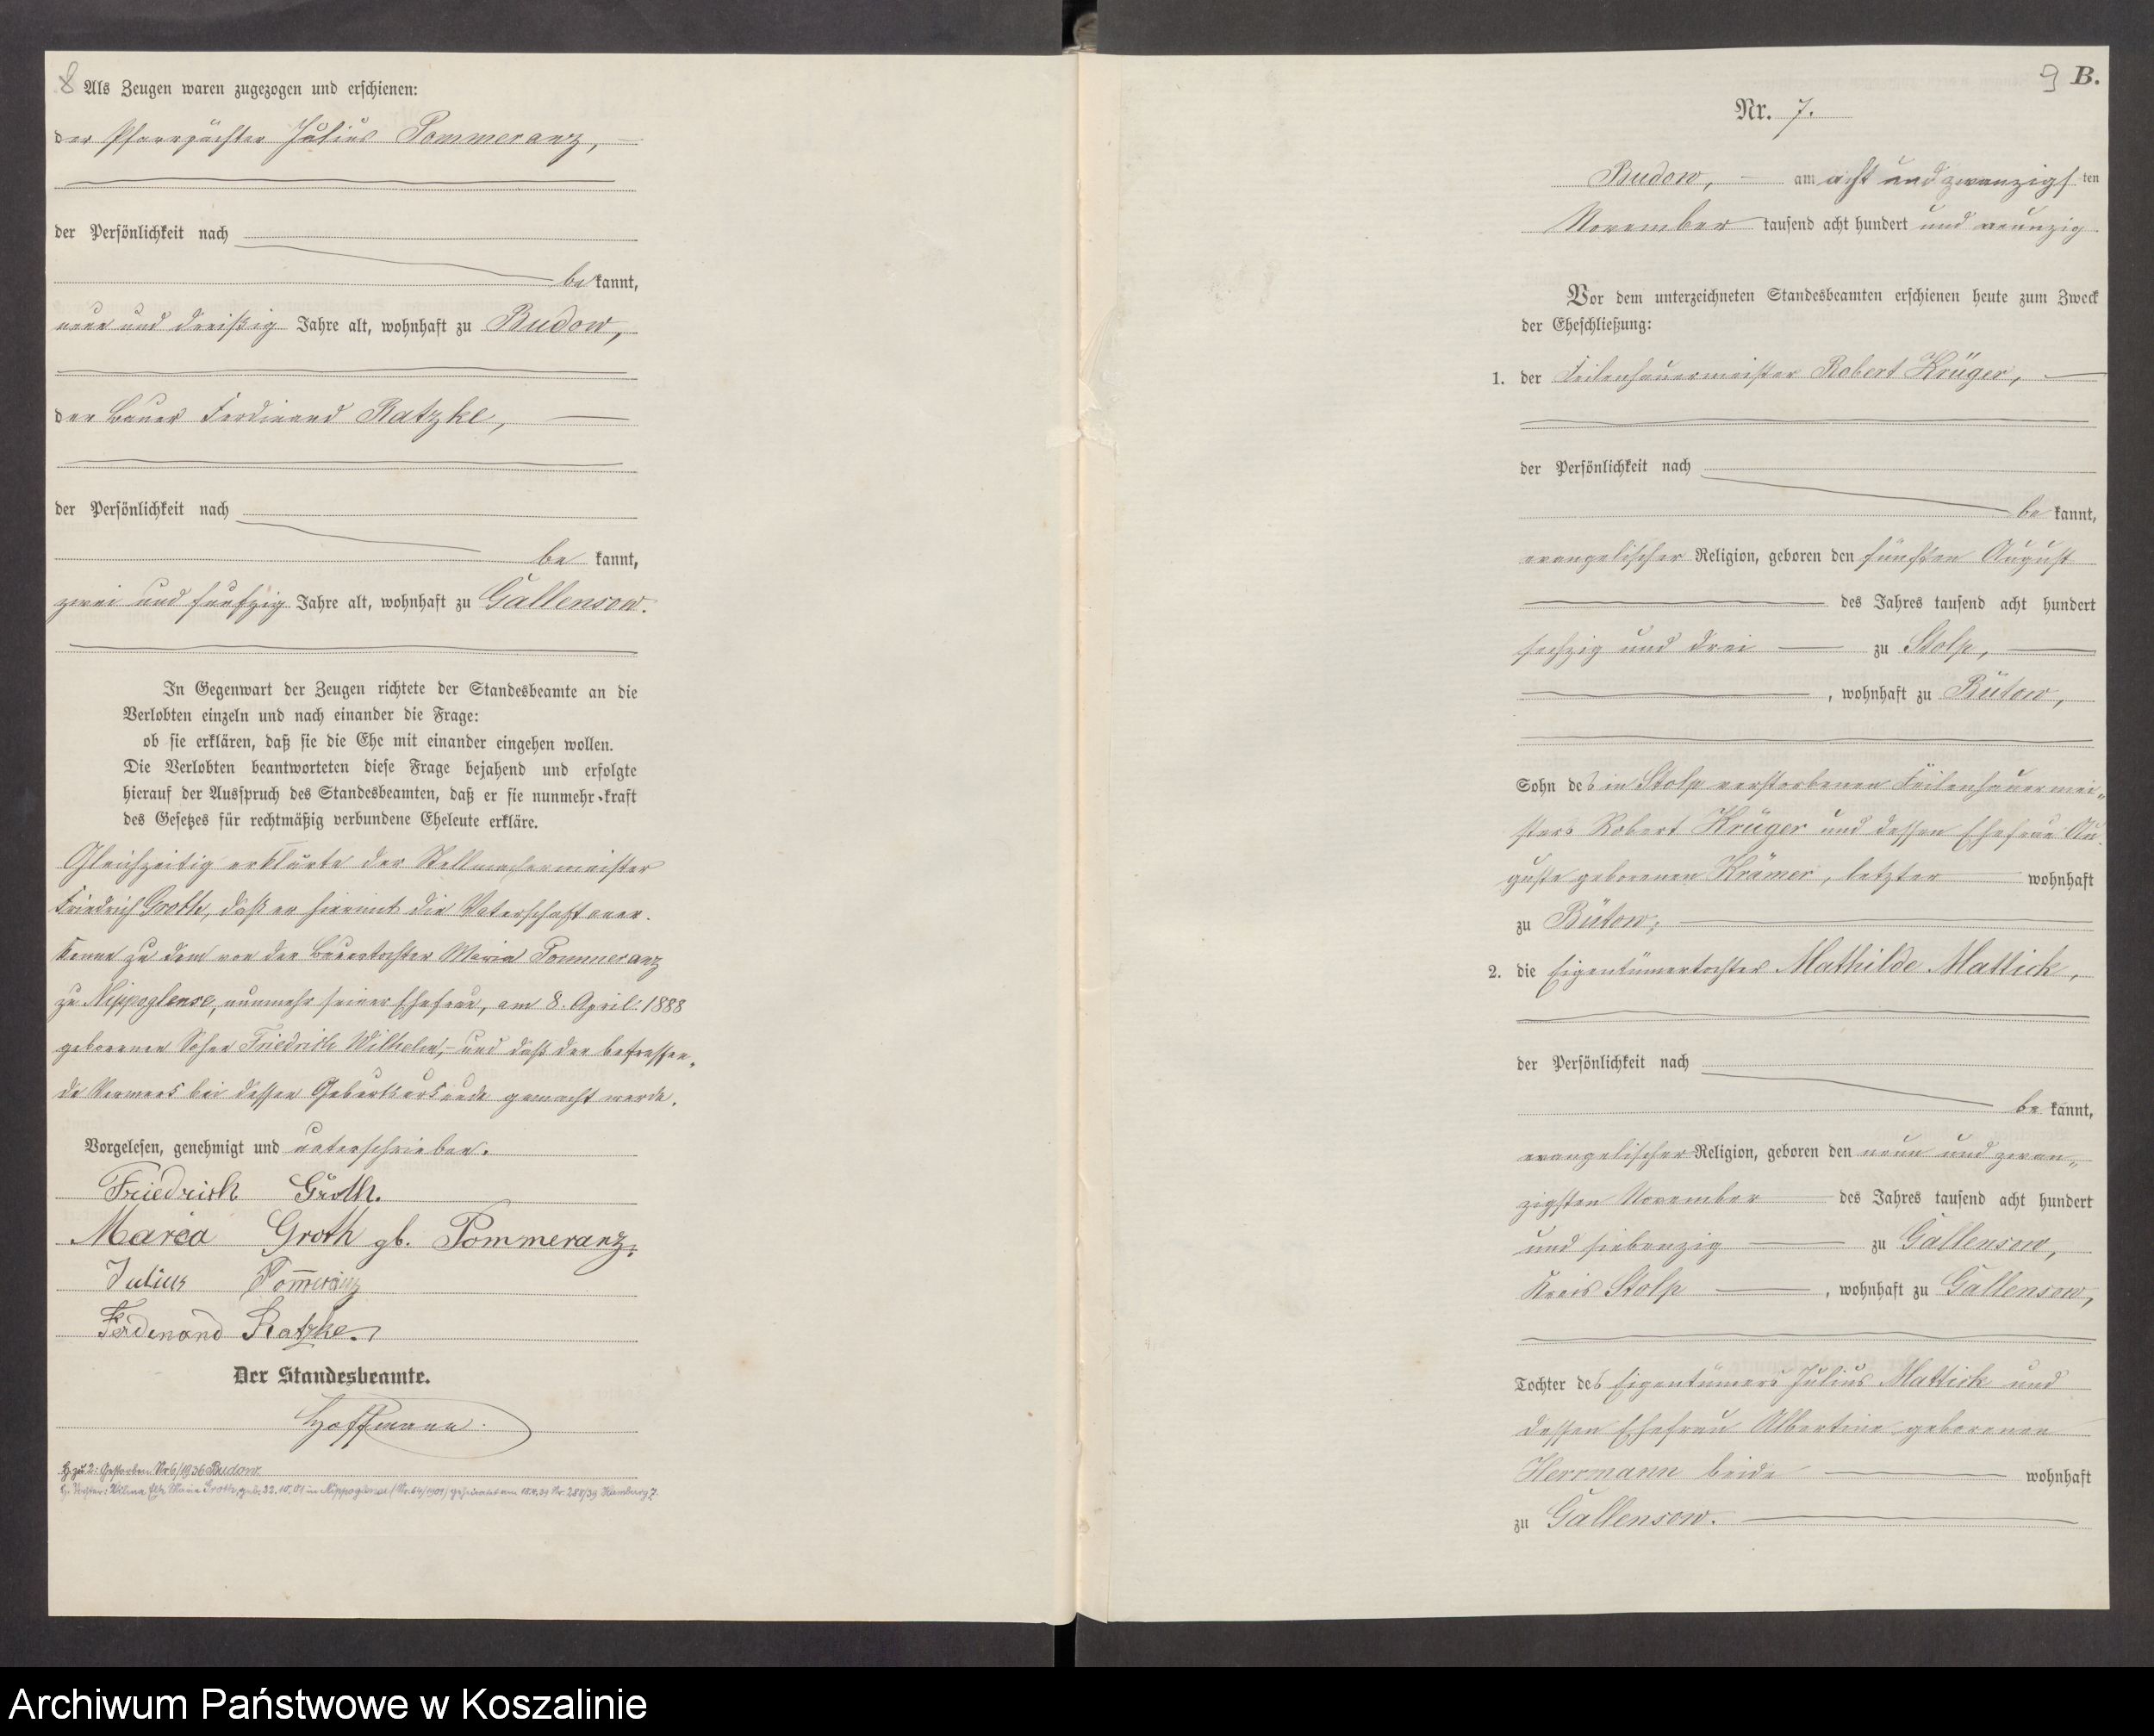 8 Als Zeugen waren zugezogen und erschienen:
der Pfarrpächter Julius Pommeranz,
der Persönlichkeit nach
be kannt,
neun und dreißig Jahre alt, wohnhaft zu Budow,
der Bauer Ferdinand Ratzke,
der Persönlichkeit nach
be kannt,
zwei und fünfzig Jahre alt, wohnhaft zu Gallensow.
In Gegenwart der Zeugen richtete der Standesbeamte an die
Verlobten einzeln und nach einander die Frage:
ob sie erklären, daß sie die Ehe mit einander eingehen wollen.
Die Verlobten beantworteten diese Frage bejahend und erfolgte
hierauf der Ausspruch des Standesbeamten, daß er sie nunmehr kraft
des Gesetzes für rechtmäßig verbundene Eheleute erkläre.
Gleichzeitig erklärte der Stellmachermeister
Friedrich Groth, daß er hiermit die Vaterschaft aner-
kenne zu dem von der Bauertochter Maria Pommeranz
zu Nippoglense, nunmehr seiner Ehefrau, am 8. April 1888
geborenen Sohne Friedrich Wilhelm, und daß der betreffen-
de Vermerk bei dessen Geburtsurkunde gemacht werde.
Vorgelesen, genehmigt und unterschrieben.
Friedrich Groth.
Maria Groth gb. Pommeranz.
Julius Pom̅eranz
Ferdinand Ratzke.
Der Standesbeamte.
Hoffmann.
H. zu 2: Gestorben Nr 6/1936 Budow
Maria Groth, geb. 22.10.01 in Nippoglense (Nr. 64/1901) geheiratet am 15.4.39 Nr. 288/39 Hamburg 7.
9 B.
Nr. 7.
Budow, am acht und zwanzigs ten
November tausend acht hundert und neunzig
Vor dem unterzeichneten Standesbeamten erschienen heute zum Zweck
der Eheschließung:
1. der Feilenhauermeister Robert Krüger,
der Persönlichkeit nach
be kannt,
evangelischer Religion, geboren den fünften August
des Jahres tausend acht hundert
sechzig und drei zu Stolp,
, wohnhaft zu Bütow,
Sohn des in Stolp verstorbenen Feilenhauermei-
sters Robert Krüger und dessen Ehefrau Au-
guste geborenen Krämer, letzter wohnhaft
zu Bütow;
2. die Eigentümertochter Mathilde Mattick,
der Persönlichkeit nach
be kannt,
evangelischer Religion, geboren den neun und zwan-
zigsten November des Jahres tausend acht hundert
und siebenzig zu Gallensow,
Kreis Stolp, wohnhaft zu Gallensow,
Tochter des Eigentümers Julius Mattick und
dessen Ehefrau Albertine geborenen
Herrmann beide wohnhaft
zu Gallensow.
Archiwum Państwowe w Koszalinie